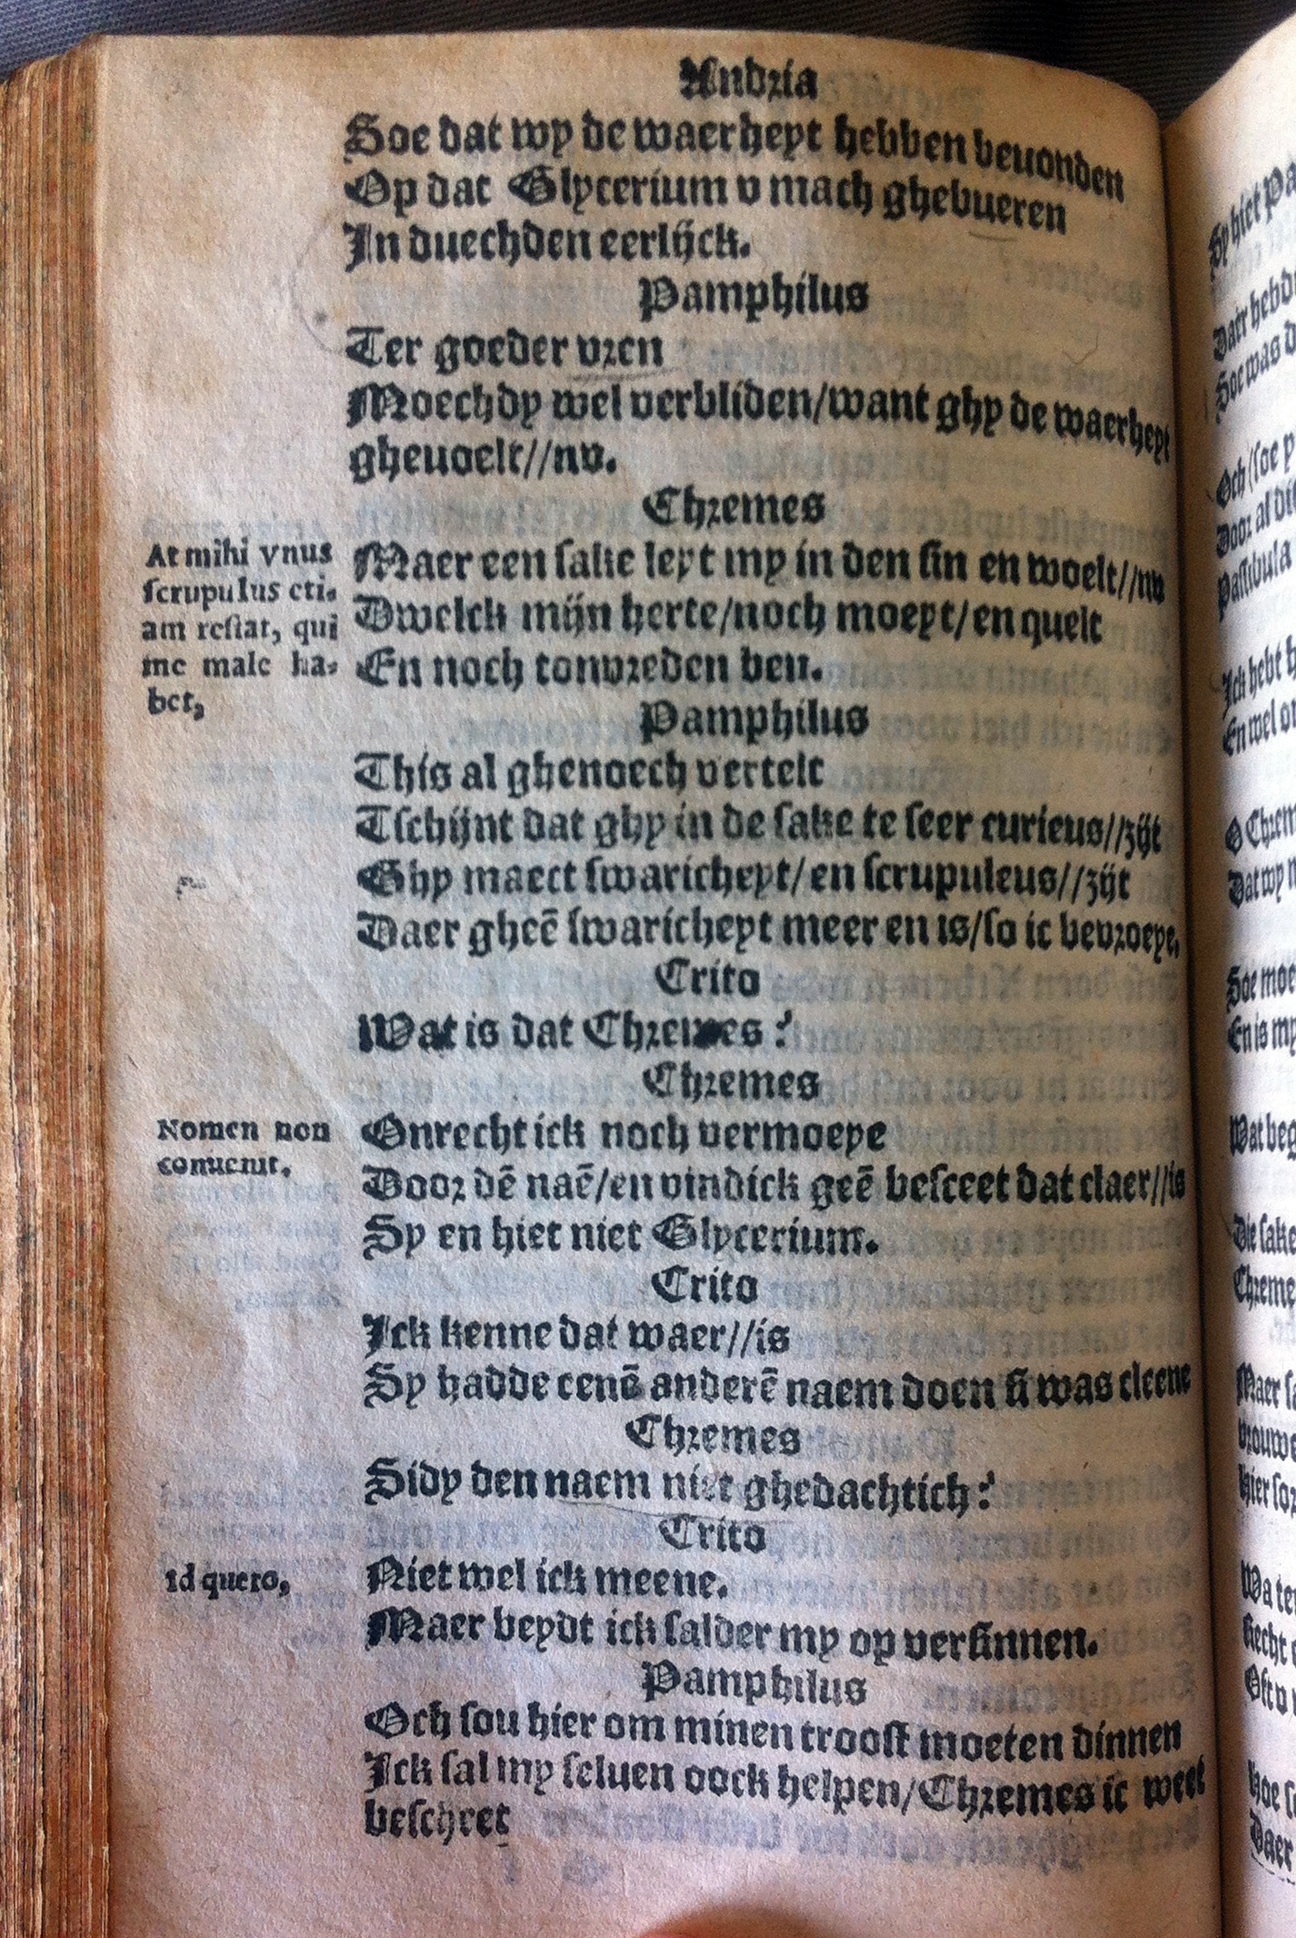 Andria
Soe dat wy de waerheyt hebben beuonden
Op dat Glycerium v mach ghebueren
In duechden eerlijck.
Pamphilus
Ter goeder vren
Moechdy wel verbliden/want ghy de waerheyt
gheuoelt//nv.
Chremes
At mihi vnus
scrupulus eti-
am restat, qui
me male ha-
bet,
Maer een sake leyt my in den sin en woelt//nv
Dwelck mijn herte/noch moeyt/en quelt
En noch tonvreden ben.
Pamphilus
This al ghenoech vertelt
Tschijnt dat ghy in de sake te seer curieus//zijt
Ghy maect swaricheyt/en scrupuleus//zijt
Daer gheē swaricheyt meer en is/so ic bevroeye.
Crito
Wat is dat Chremes?
Chremes
Nomen non
conuenit.
Onrecht ick noch vermoeye
Door dē naē/en vindick geē besceet dat claer//is
Sy en hiet niet Glycerium.
Crito
Ick kenne dat waer//is
Sy hadde eenē anderē naem doen si was cleene
Chremes
Sidy den naem niet ghedachtich?
Crito
Id quero,
Niet wel ick meene.
Maer beydt ick salder my op versinnen.
Pamphilus
Och sou hier om minen troost moeten dinnen
Ick sal my seluen oock helpen/Chremes ic weet
bescheet